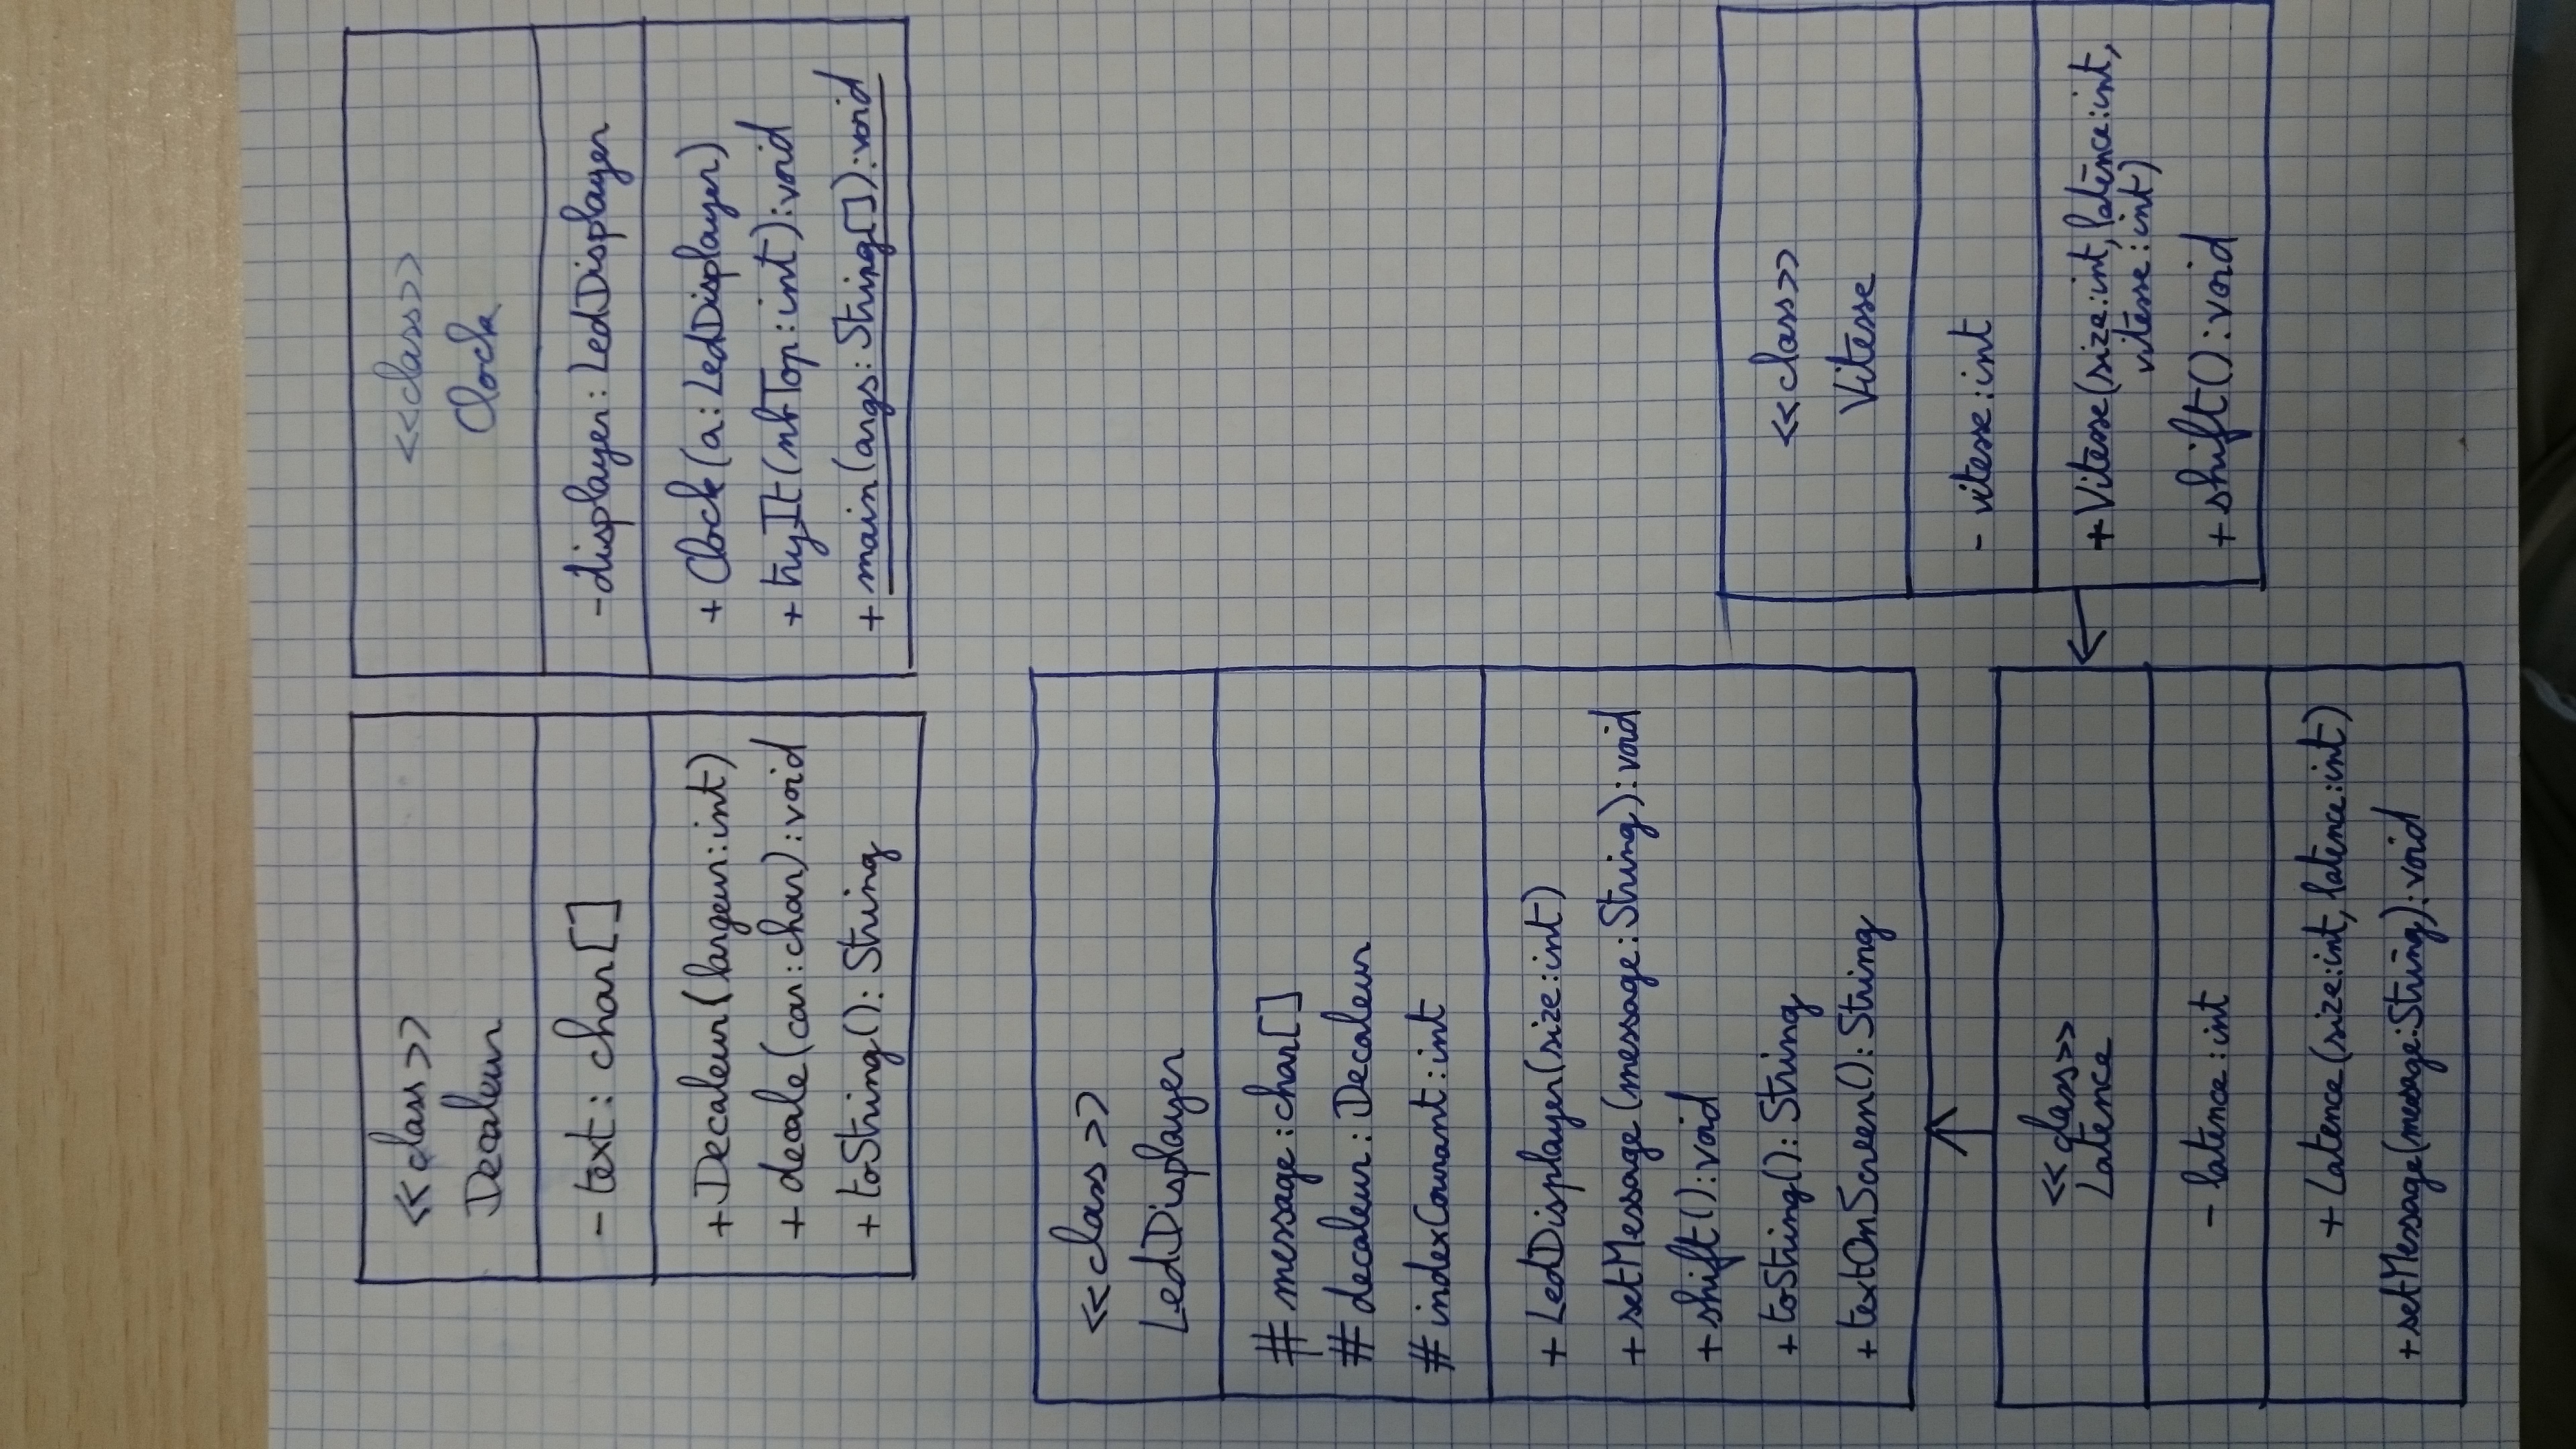 <<class>>
Decaleur
- text : char[]
+ Decaleur(largeur:int)
+ decale(car:char):void
+ toString(): String
<<class>>
Clock
- displayer: LedDisplayer
+ Clock(a:LedDisplayer)
+ tryIt(nbTop:int):void
+ main(args:String[]):void
<<class>>
LedDisplayer
# message : char[]
# decaleur : Decaleur
# indexCourant : int
+ LedDisplayer(size:int)
+ setMessage(message:String): void
+ shift():void
+ toString(): String
+ textOnScreen(): String
<<class>>
Vitesse
- vitesse:int
+ Vitesse(size:int, latence:int,
vitesse:int)
+ shift():void
<<class>>
Latence
- latence:int
+ Latence(size:int, latence:int)
+ setMessage(message:String): void